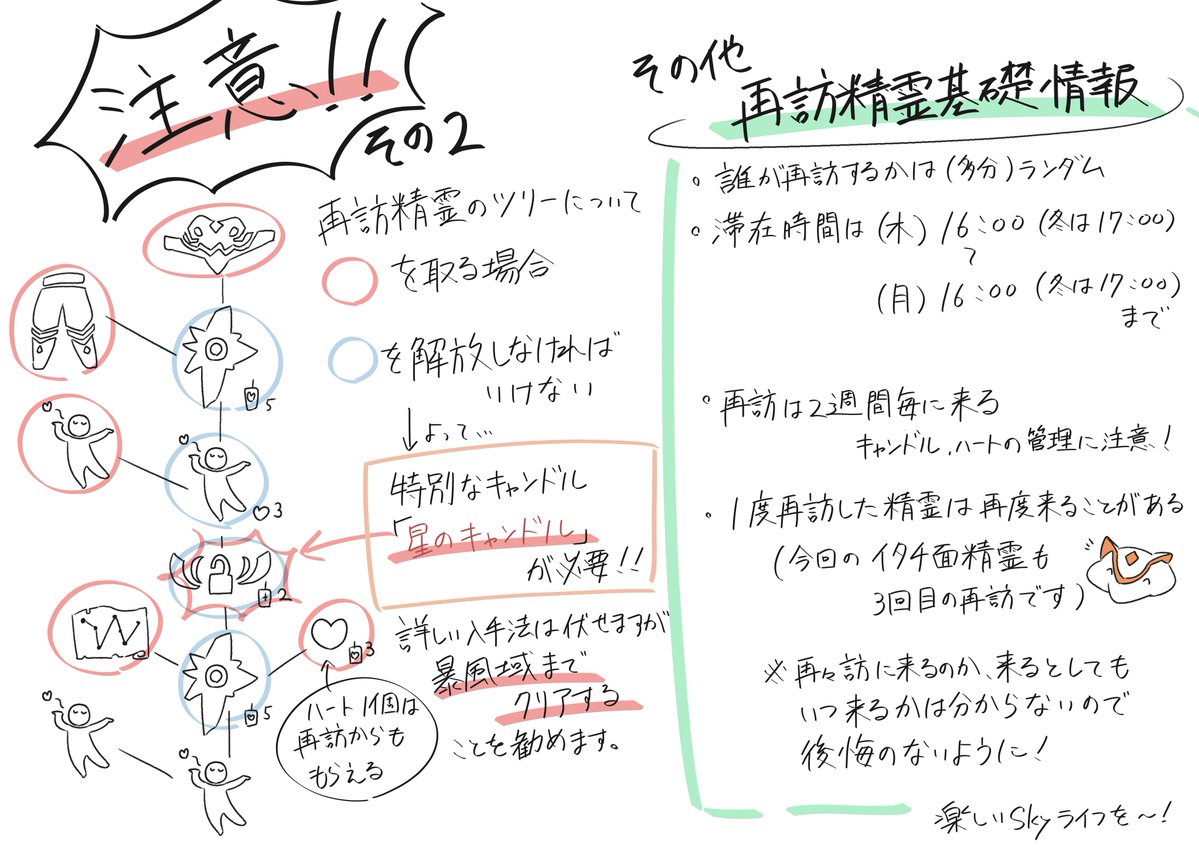 注意!!
その2
再訪精霊のツリーについて
を取る場合
を解放しなければ
いけない
よって…
特別なキャンドル
「星のキャンドル」
が必要!!
5
3
2
3
5
ハート1個は
再訪からも
もらえる
詳しい入手法は伏せますが
暴風域まで
クリアする
ことを勧めます。
その他
再訪精霊基礎情報
。誰が再訪するかは(多分)ランダム
。滞在時間は(木)16:00(冬は17:00)
〜
(月)16:00(冬は17:00)
まで
。再訪は2週間毎に来る
キャンドル、ハートの管理に注意!
。1度再訪した精霊は再度来ることがある
(今回のイタチ面精霊も
3回目の再訪です)
※再々訪に来るのか、来るとしても
いつ来るかは分からないので
後悔のないように!
楽しいSkyライフを〜!